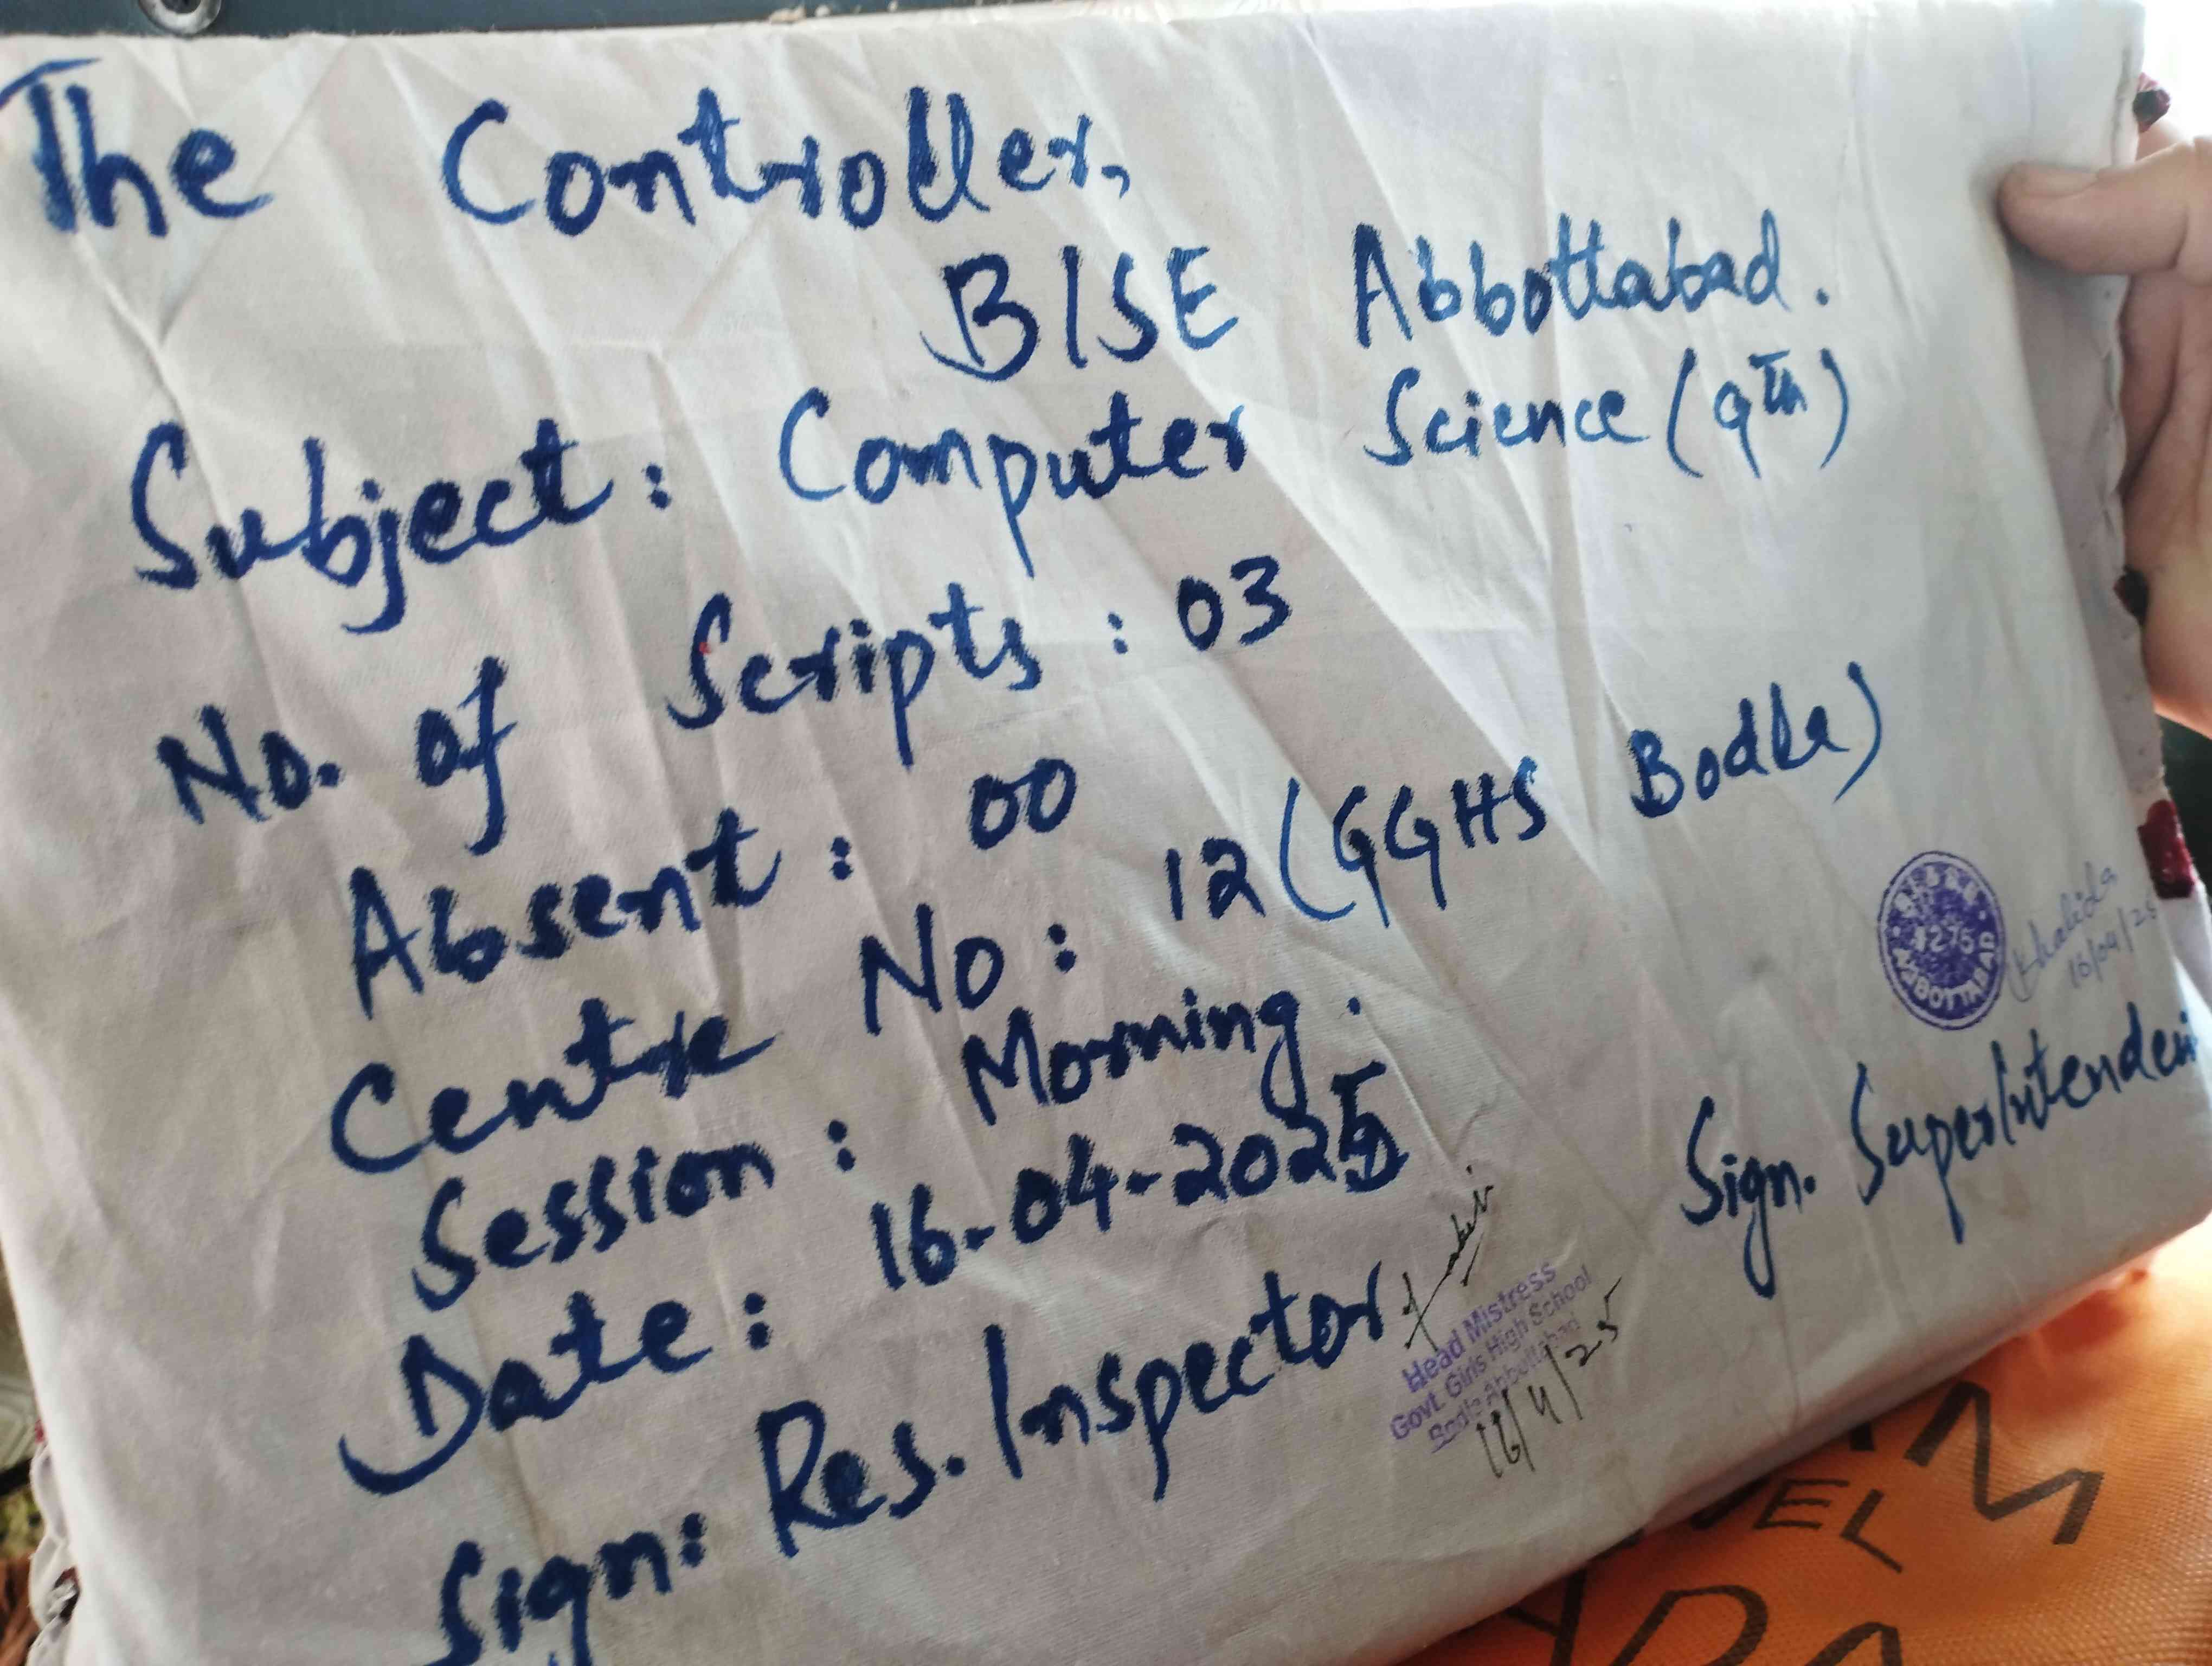 The Controller,
BISE Abbottabad.
Subject: Computer Science (9th)
No. of Scripts: 03
Absent: 00
Centre No: 12 (GGHS Bodla)
Session: Morning.
Date: 16-04-2025
Sign: Res. Inspector
Sign. Superintenden
Khalida
16/04/25
ABBOTTABAD
Head Mistress
Govt. Girls High School
Abbottabad
16/4/25